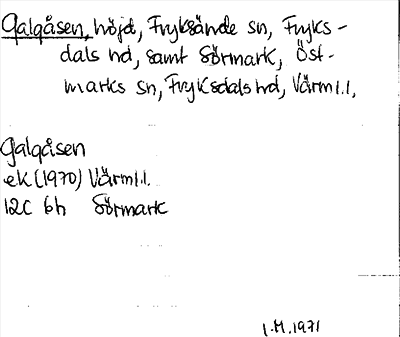 Galgåsen, höjd, Fryksände sn, Fryks-
dals hd, samt Sörmark, Öst-
marks sn, Fryksdals hd, Värml.l.,
Galgåsen
ek (1970) Värml.l.
12C 6h Sörmark
I.H. 1971